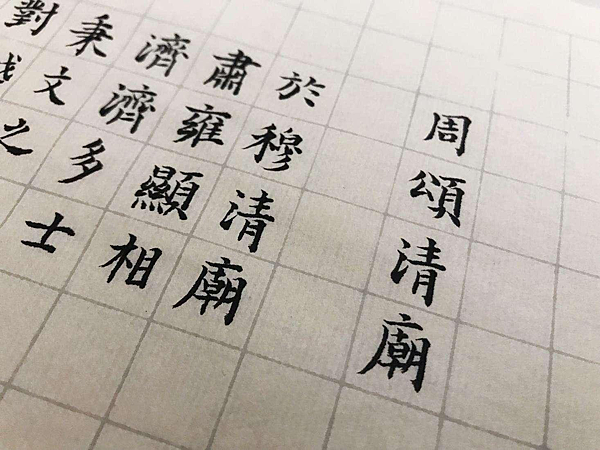 周頌清廟
於穆清廟
肅雍顯相
濟濟多士
秉文之
對